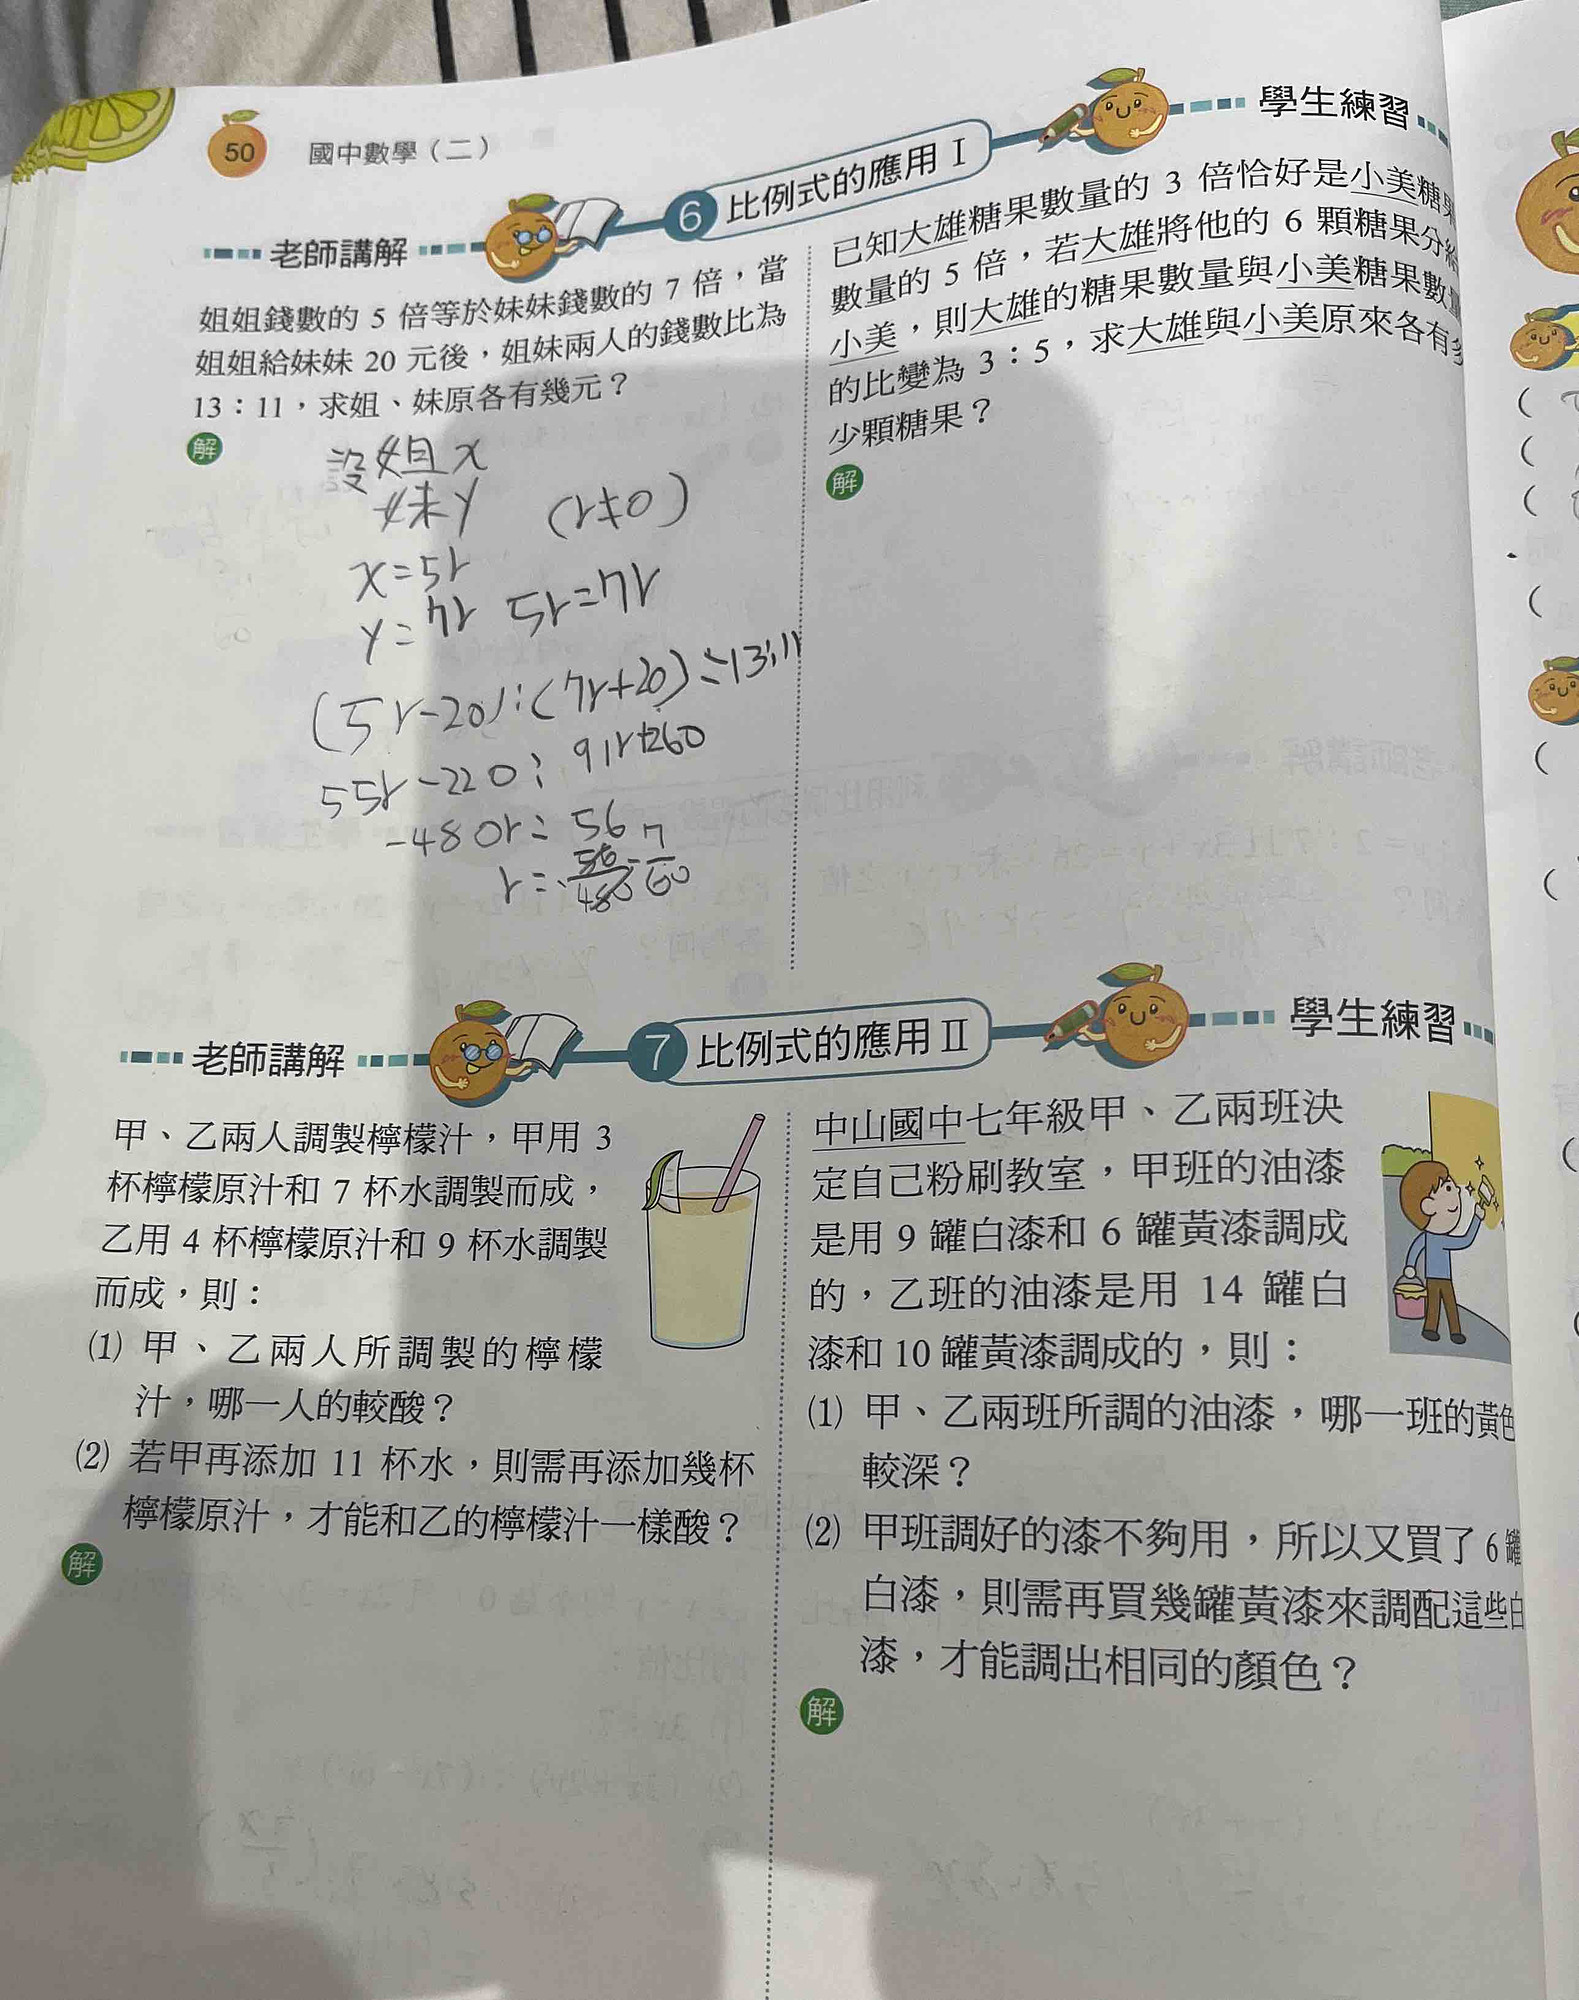 50 國中數學(二)
6 比例式的應用 I
老師講解
姐姐錢數的 5 倍等於妹妹錢數的 7 倍,當
姐姐給妹妹 20 元後,姐妹兩人的錢數比為
13:11,求姐、妹原各有幾元?
解
設姐x
妹y (r≠0)
x=5r
y=7r 5r=7r
(5r-20):(7r+20)=13:11
55r-220: 91r+260
-480r= 56
學生練習
已知大雄糖果數量的 3 倍恰好是小美糖果
數量的 5 倍,若大雄將他的 6 顆糖果分給
小美,則大雄的糖果數量與小美糖果數量
的比變為 3:5,求大雄與小美原來各有多
少顆糖果?
解
7 比例式的應用 II
老師講解
甲、乙兩人調製檸檬汁,甲用 3
杯檸檬原汁和 7 杯水調製而成,
乙用 4 杯檸檬原汁和 9 杯水調製
而成,則:
⑴ 甲、乙兩人所調製的檸檬
汁,哪一人的較酸?
⑵ 若甲再添加 11 杯水,則需再添加幾杯
檸檬原汁,才能和乙的檸檬汁一樣酸?
解
學生練習
中山國中七年級甲、乙兩班決
定自己粉刷教室,甲班的油漆
是用 9 罐白漆和 6 罐黃漆調成
的,乙班的油漆是用 14 罐白
漆和 10 罐黃漆調成的,則:
⑴ 甲、乙兩班所調的油漆,哪一班的黃色
較深?
⑵ 甲班調好的漆不夠用,所以又買了 6 罐
白漆,則需再買幾罐黃漆來調配這些白
漆,才能調出相同的顏色?
解